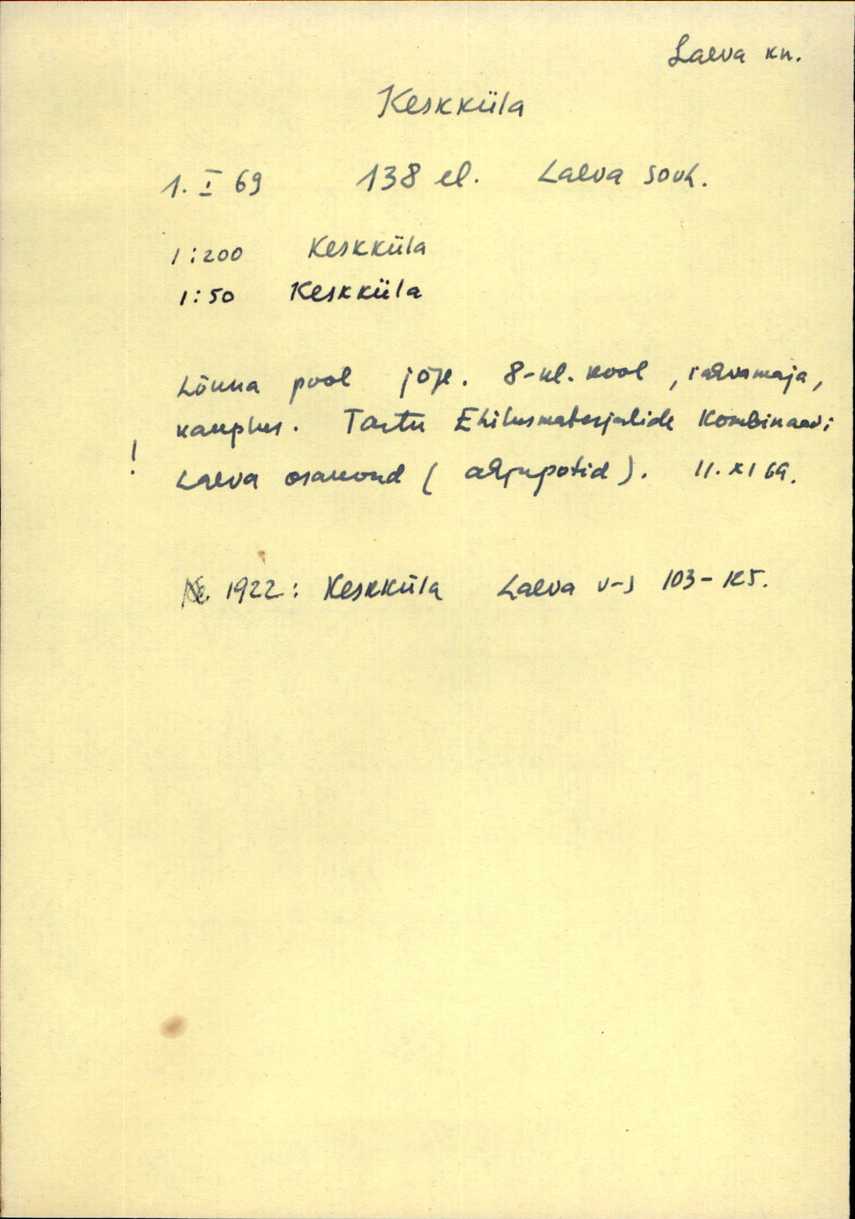 Laeva kn.
Keskküla
1. I 69 138 el. Laeva sovh.
1:200 Keskküla
1:50 Keskküla
Lõuna pool jõge. 8-kl. kool, rahvamaja,
kauplus. Tartu Ehitusmaterjalide Kombinaadi
! Laeva osakond (ahjupotid). 11. XI 69.
1922: Keskküla Laeva v-s 103-